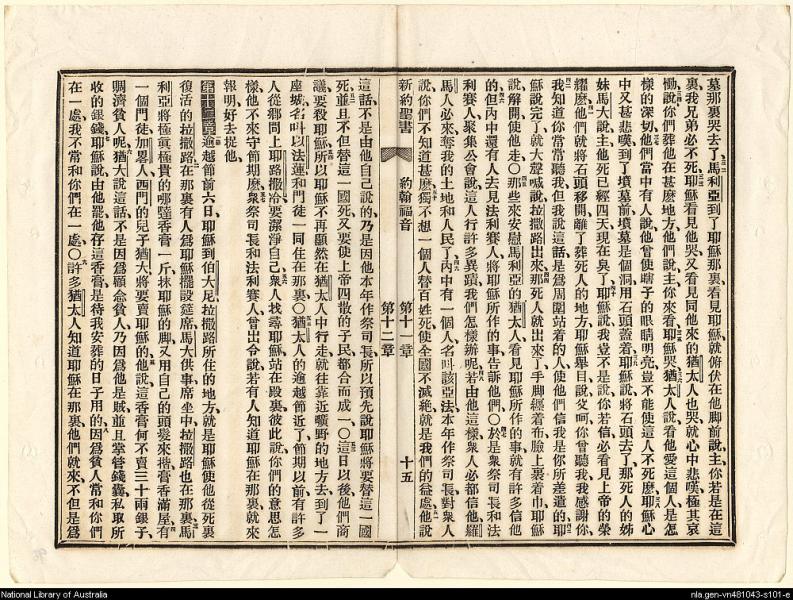 墓那裏哭去了、馬利亞到了耶穌那裏、看見耶穌、就俯伏在他脚前說、主你若是在這
裏我兄弟必不死、耶穌看見他哭、又看見同他來的猶太人也哭、就心中悲嘆極其哀
慟說、你們葬他在甚麽地方、他們說、主你來看、耶穌哭、猶太人說、看他愛這個人、是怎
樣的深切、他們當中有人說、他曾使瞎子的眼睛明亮、豈不能使這人不死麽、耶穌心
中又甚悲嘆、到了墳墓前、墳墓是個洞、用石頭蓋着、耶穌說、將石頭去了、那死人的姊
妹馬大說、主、他死已經四天、現在臭了、耶穌說、我豈不是說、你若信必看見上帝的榮
耀麽、他們就將石頭移開、離了葬死人的地方、耶穌舉目說、父呵、你曾聽我、我感謝你、
我知道你常常聽我、但我說這話、是爲周圍站着的人、使他們信我是你所差遣的、耶
穌說完了、就大聲喊說、拉撒路出來、那死人就出來了、手脚纏着布、臉上裹着巾、耶穌
說、解開使他走、○那些來安慰馬利亞的猶太人、看見耶穌所作的事、就有許多信他
的、但內中還有人去見法利賽人、將耶穌所作的事告訴他們、○於是衆祭司長和法
利賽人聚集公會說、這人行許多異蹟、我們怎樣辦呢、若由他這樣、衆人必都信他、羅
馬人必來奪我的土地和人民了、內中有一個人、名叫該亞法、本年作祭司長、對衆人
說、你們不知道甚麽、獨不想一個人替百姓死、使全國不滅絕、就是我們的益處、他說
新約聖書 約翰福音 第十一章 第十二章 十五
這話不是由他自己說的、乃是因他本年作祭司長、所以預先說耶穌將要替這一國
死、並且不但替這一國死、又要使上帝四散的子民都合而成一、○這日以後、他們商
議要殺耶穌、所以耶穌不再顯然在猶太人中行走、就往靠近曠野的地方去、到了一
座城、名叫以法蓮、和門徒一同住在那裏、○猶太人的逾越節近了、節期以前、有許多
人從鄉間上耶路撒冷、要潔淨自己、衆人找尋耶穌、站在殿裏彼此說、你們的意思怎
樣、他不來守節期麽、衆祭司長和法利賽人、曾出令說、若有人知道耶穌在那裏、就來
報明、好去捉他、
第十二章 逾越節前六日、耶穌到伯大尼、拉撒路所住的地方、就是耶穌使他從死裏
復活的拉撒路、在那裏有人爲耶穌擺設筵席、馬大供事、席坐中拉撒路也在那裏、馬
利亞將極眞極貴的哪噠香膏一斤、抹耶穌的脚、又用自己的頭髮來揩、膏香滿屋、有
一個門徒、加畧人西門的兒子猶大、將要賣耶穌的、他說、這香膏何不賣三十兩銀子、
賙濟貧人呢、猶大說這話、不是因爲顧念貧人、乃因爲他是賊、並且掌管錢囊、私取所
收的銀錢、耶穌說、由他罷、他存這香膏、是待我安葬的日子用的、因爲貧人常和你們
在一處、我不常和你們在一處、○許多猶太人知道耶穌在那裏、他們就來、不但是爲
National Library of Australia
nla.gen-vn481043-s101-e